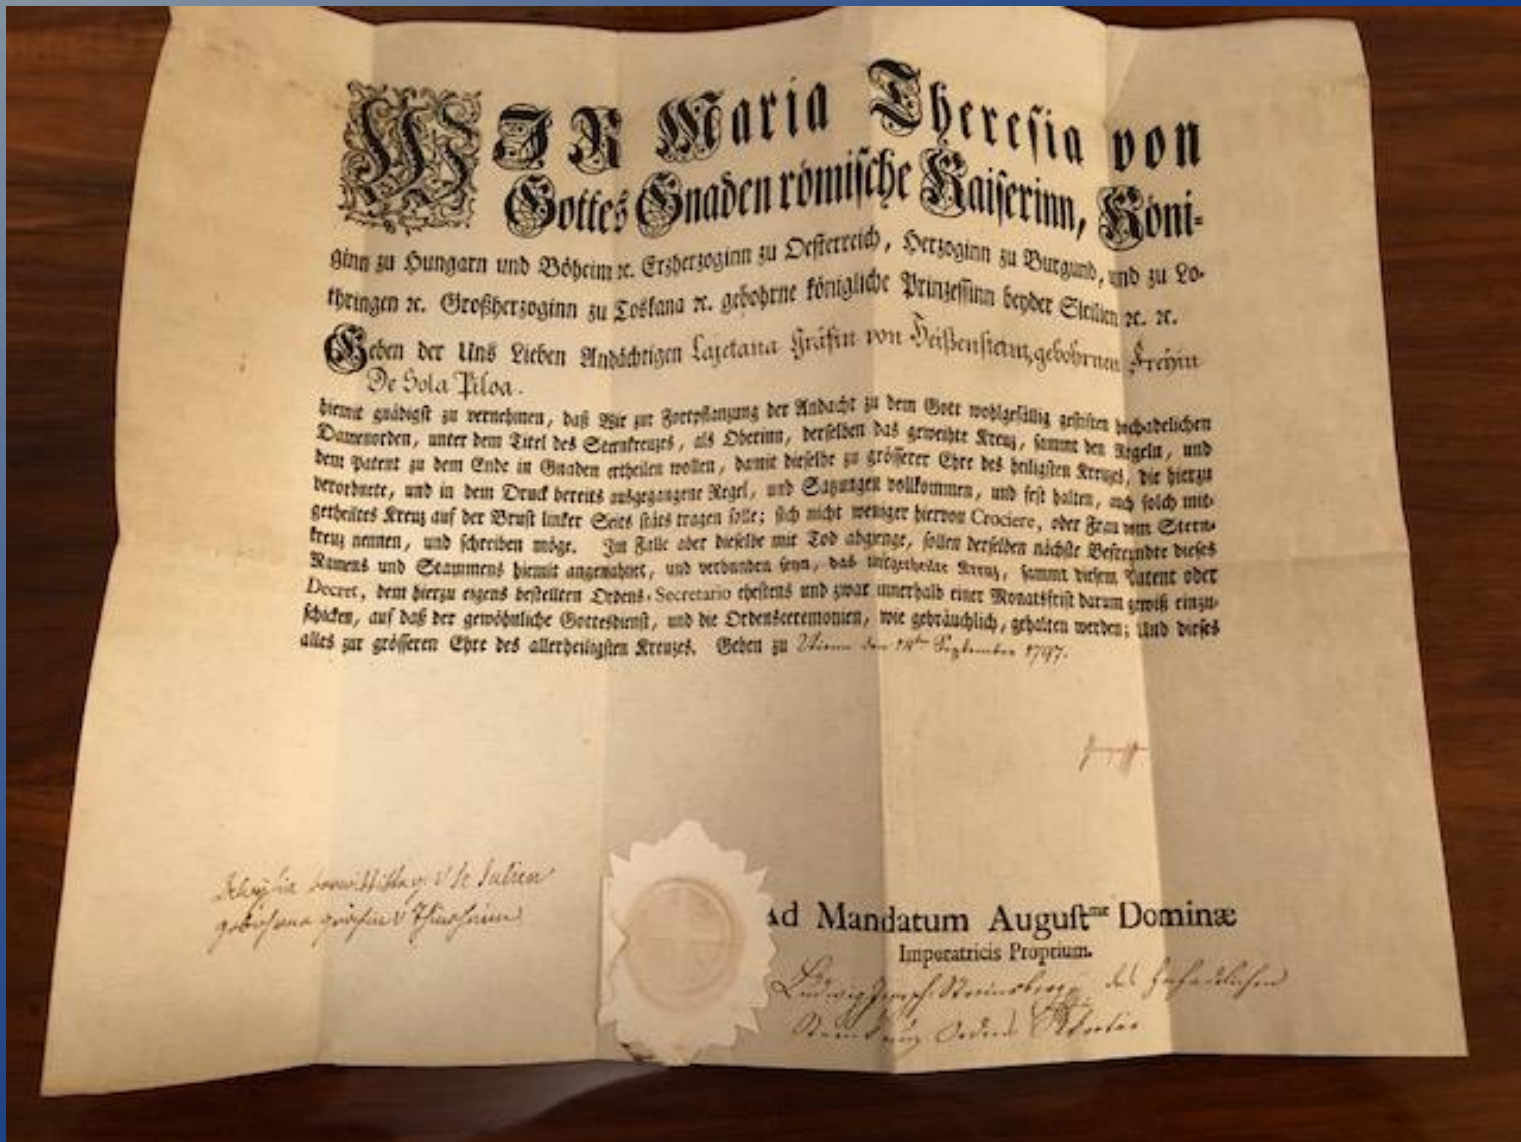 WIR Maria Theresia von
Gottes Gnaden römische Kaiserinn, Köni-
ginn zu Hungarn und Böheim ꝛc. Erzherzoginn zu Oesterreich, Herzoginn zu Burgund, und zu Lo-
thringen ꝛc. Großherzoginn zu Toskana ꝛc. gebohrne königliche Prinzessinn beyder Sicilien ꝛc. ꝛc.
Geben der Uns Lieben Andächtigen Cajetana Gräfin von Heißenstam, gebohrnen Freyin
De Sola Piloa.
hiemit gnädigst zu vernehmen, daß Wir zur Fortpflanzung der Andacht zu dem Gott wohlgefällig gestiften hochadelichen
Damenorden, unter dem Titel des Sternkreuzes, als Oberinn, derselben das geweihte Kreuz, sammt den Regeln, und
dem Patent zu dem Ende in Gnaden ertheilen wollen, damit dieselbe zu grösserer Ehre des heiligsten Kreuzes, die hierzu
verordnete, und in dem Druck bereits ausgegangene Regel, und Satzungen vollkommen, und fest halten, auch solch mit-
getheiltes Kreuz auf der Brust linker Seits stäts tragen solle; sich nicht weniger hiervon Crociere, oder Frau vom Stern-
kreuz nennen, und schreiben möge. Im Falle aber dieselbe mit Tod abgienge, sollen derselben nächste Befreundte dieses
Namens und Stammens hiemit angemahnet, und verbunden seyn, das mitgetheilte Kreuz, sammt diesem Patent oder
Decret, dem hierzu eigens bestellten Ordens-Secretario ehestens und zwar innerhalb einer Monatsfrist darum gewiß einzu-
schicken, auf daß der gewöhnliche Gottesdienst, und die Ordensceremonien, wie gebräuchlich, gehalten werden; Und dieses
alles zur grösseren Ehre des allerheiligsten Kreuzes. Geben zu Wienn den September 1797.
Ad Mandatum Augustmæ Dominæ
Imperatricis Proprium.
Ludwig Joseph des hochadelichen
Sternkreuz Ordens